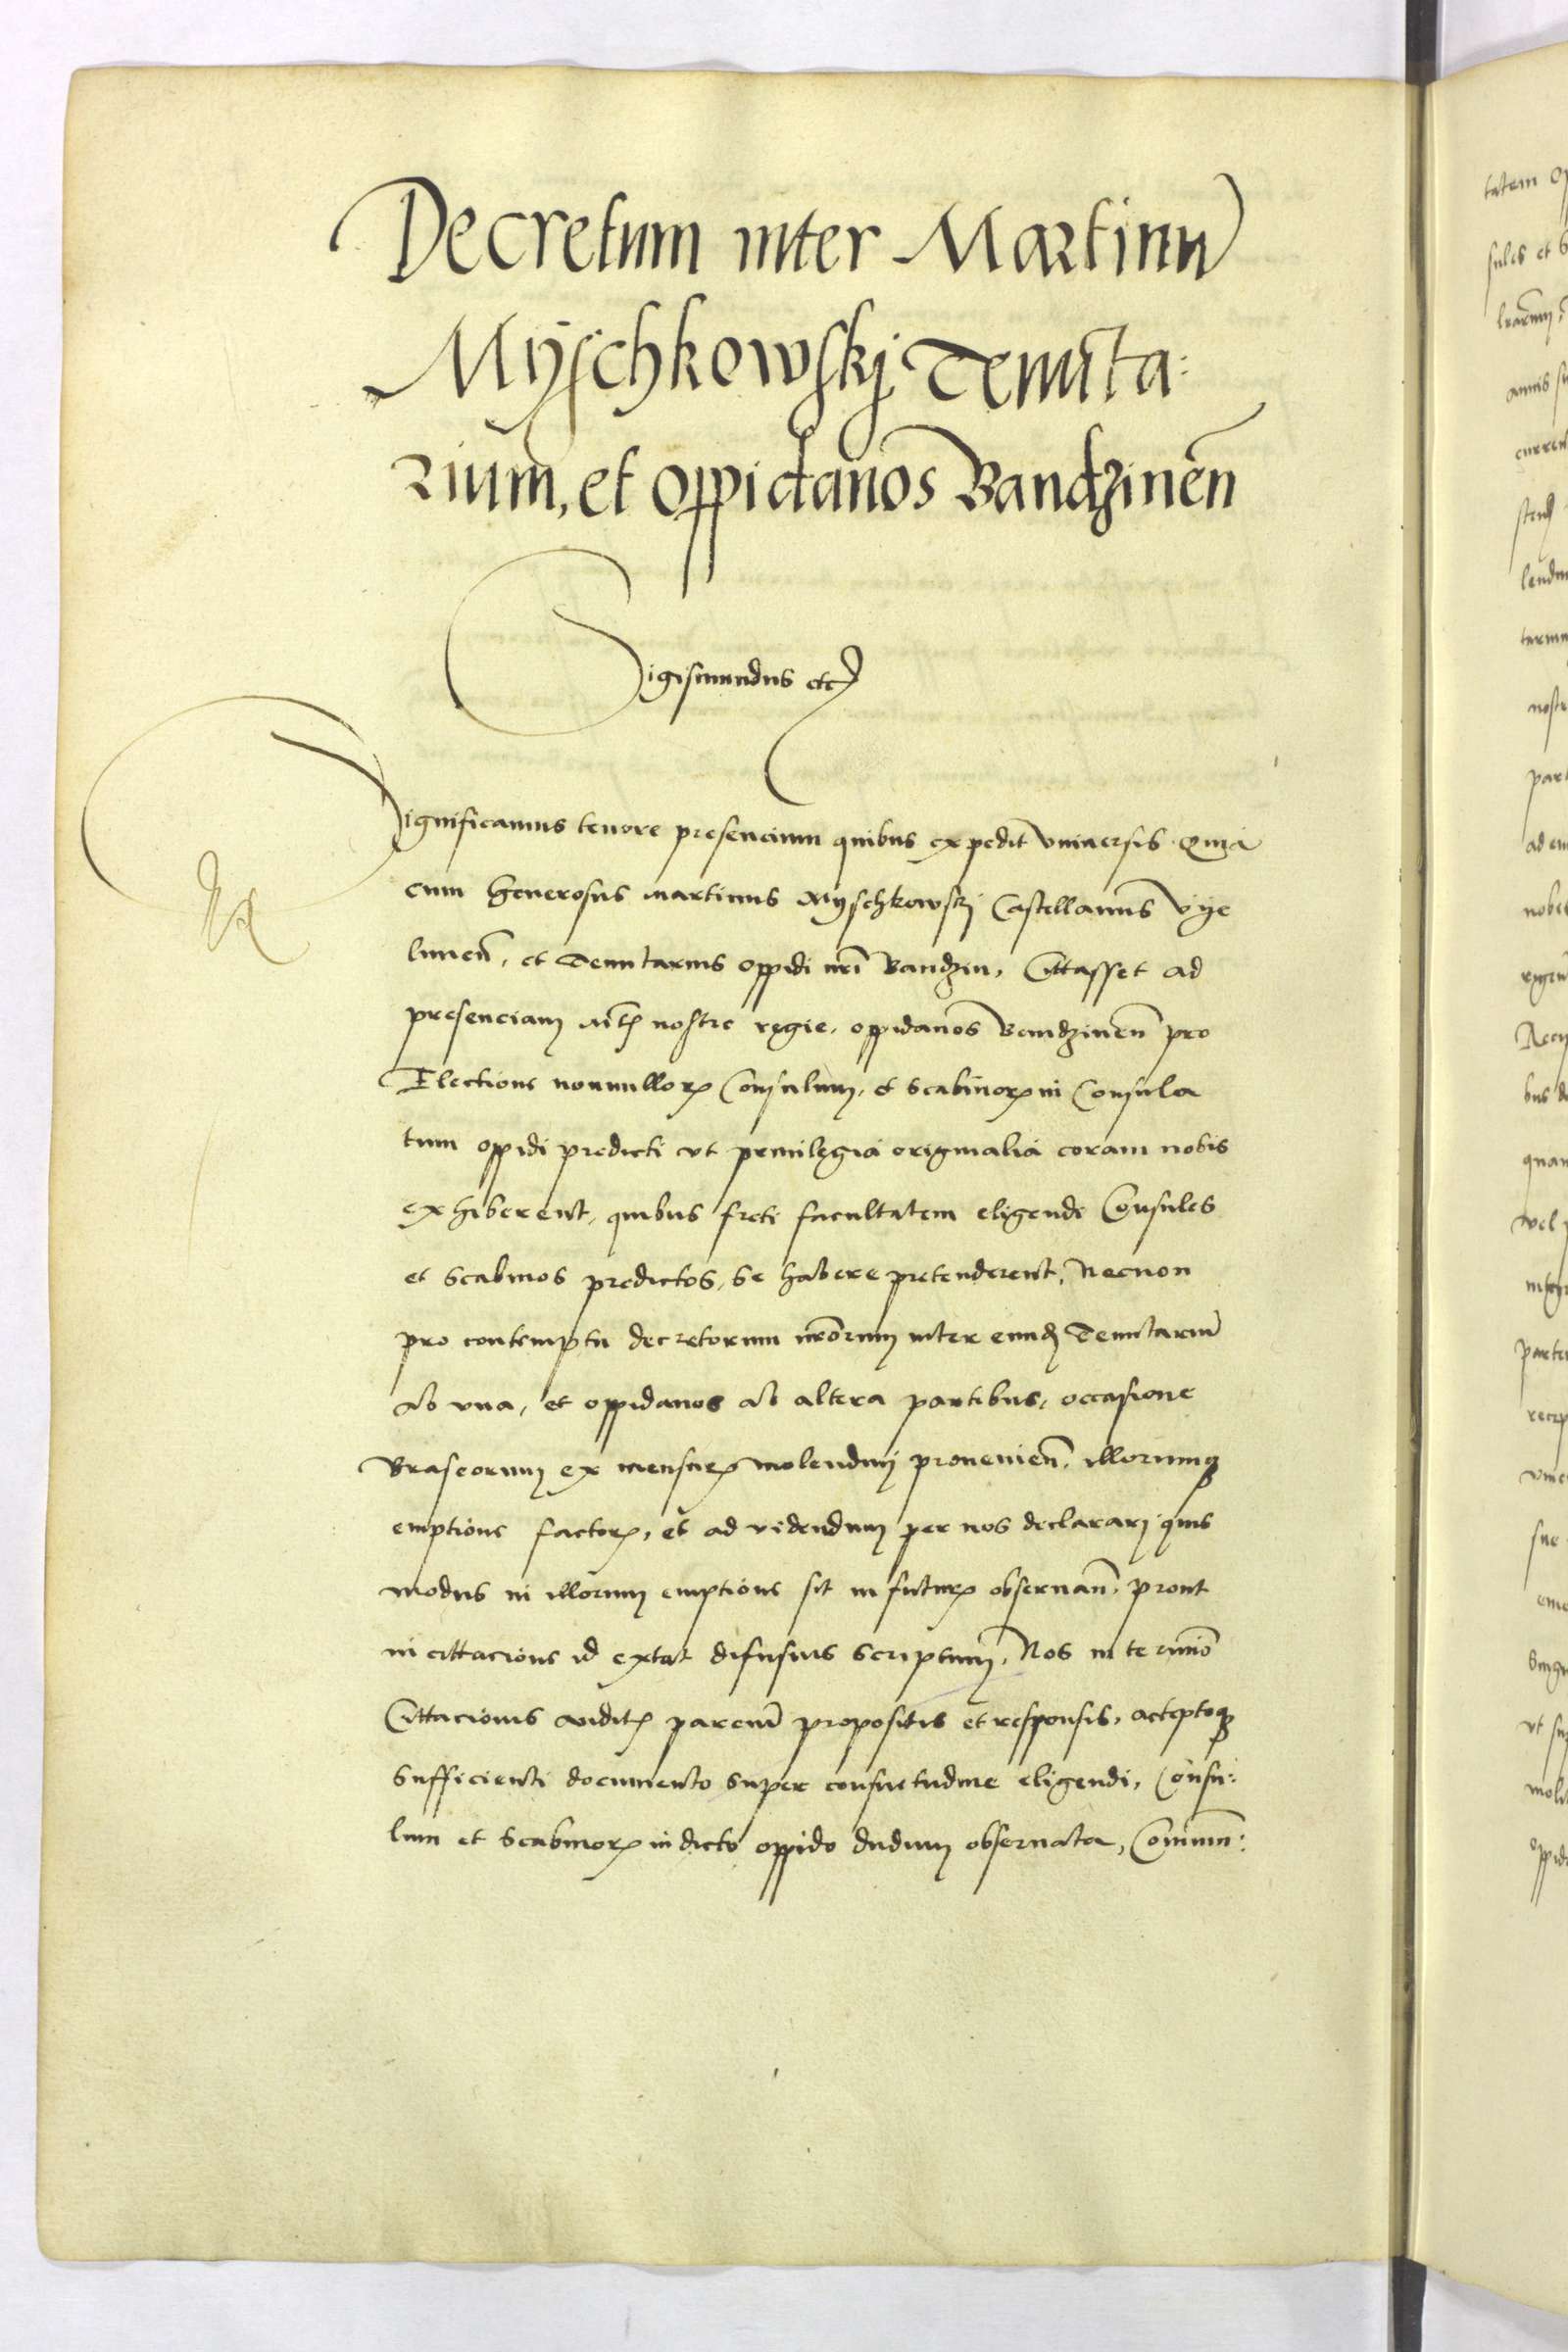 Decretum inter Martinū
Myschkowskj Tenuta:
rium, et oppidanos Bandzinen̄
Sigismundus etc
Significamus tenore presencium quibus expedit vniuersis. Quia
cum Generosus Martinus Myschkowskj Castellanus Vye
lunen̄, et Tenutarius oppidi nr̄i Bandzin, Cittasset ad
presenciam Mtꝭ nostre regie, oppidanos Bandzinen̄ pro
Electione nonnulloꝝ Consulum, et Scabinoꝝ in Consula
tum oppidi predicti vt priuilegia originalia coram nobis
exhiberent, quibus freti facultatem eligendi Consules
et Scabinos predictos, se habere pretenderent, Necnon
pro contemptu decretorum nr̄orum inter eundꝫ Tenutariū
ab vna, et oppidanos ab altera partibus, occasione
Braseorum ex mensuꝝ molendinj prouenien̄, illorumqꝫ
emptione factoꝝ, et ad videndum per nos declararj quis
modus in illorum emptione sit in futuꝝ obseruan̄, prout
in cittacione id extat difusius scriptum, Nos in termīo
Cittacionis auditꝭ parciū propositis et responsis, acceptoqꝫ
sufficienti documento super consuetudine eligendi, Consu:
lum et Scabinoꝝ in dicto oppido dudum obseruata, Commun: